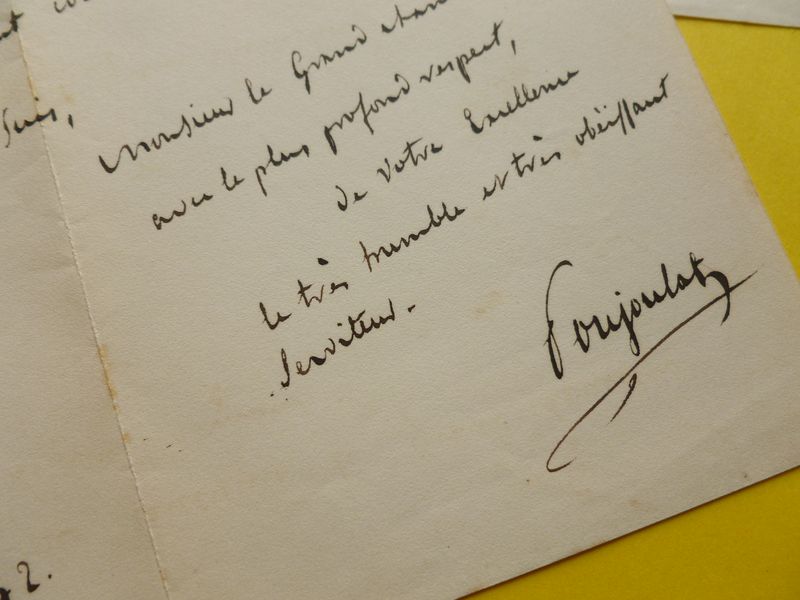 suis,
Monsieur le Grand chan
avec le plus profond respect,
de votre Excellence
le très humble et très obéissant
serviteur.
Poujoulat
2.